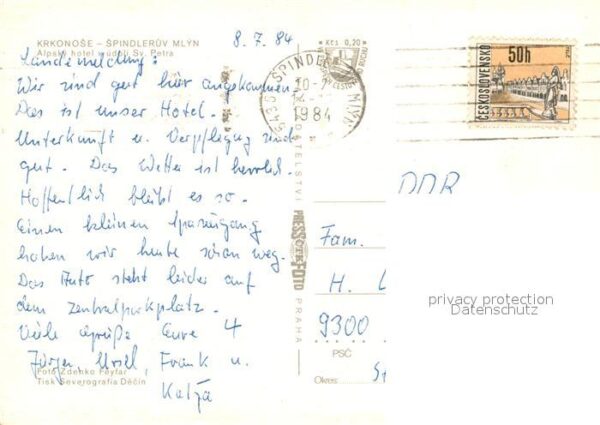 KRKONOŠE – ŠPINDLERŮV MLÝN
Alpský hotel v údolí Sv. Petra
8.7.84
Landemeldung:
Wir sind gut hier angekommen.
Das ist unser Hotel.
Unterkunft u. Verpflegung sind
gut. Das Wetter ist herrlich.
Hoffentlich bleibt es so.
Einen kleinen Spaziergang
haben wir heute schon weg.
Das Auto steht leider auf
dem Zentralparkplatz.
Viele Grüße Eure 4
Jürgen, Ursel, Frank u.
Katja
Foto Zdenko Feyfar
Tisk Severografia Děčín
Kčs 0,20
1984
PRESSFOTO
PRAHA
50h
ČESKOSLOVENSKO
DDR
Fam.
H. L
9300
PSČ
Okres
privacy protection
Datenschutz